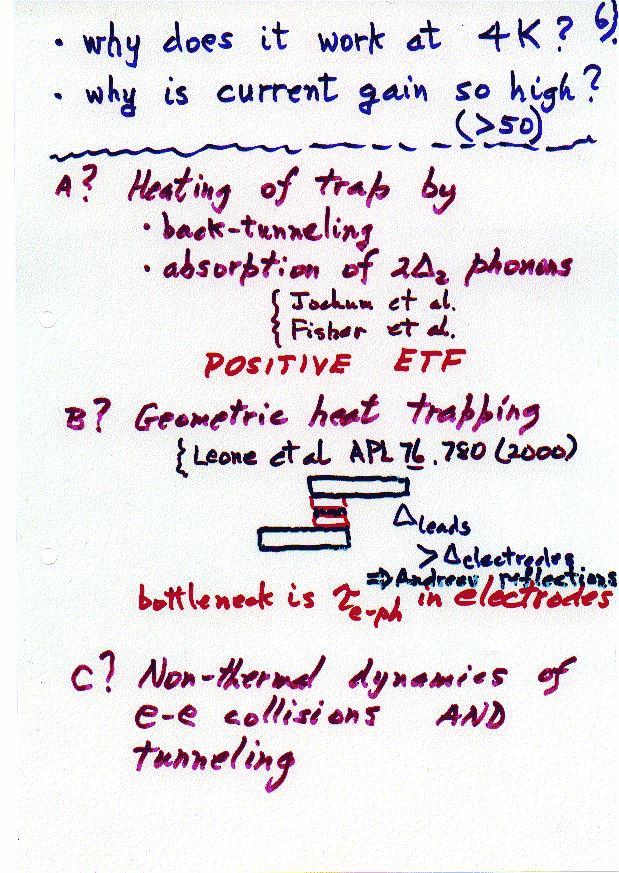 6).
• why does it work at 4K?
• why is current gain so high?
(>50)
A? Heating of trap by
• back-tunneling
• absorption of 2Δ₂ phonons
{ Jochum et al.
{ Fisher et al.
POSITIVE ETF
B? Geometric heat trapping
{ Leone et al APL 76, 780 (2000)
Δleads
> Δelectrodes
⇒ Andreev reflections
bottleneck is τe-ph in electrodes
C? Non-thermal dynamics of
e-e collisions AND
tunneling